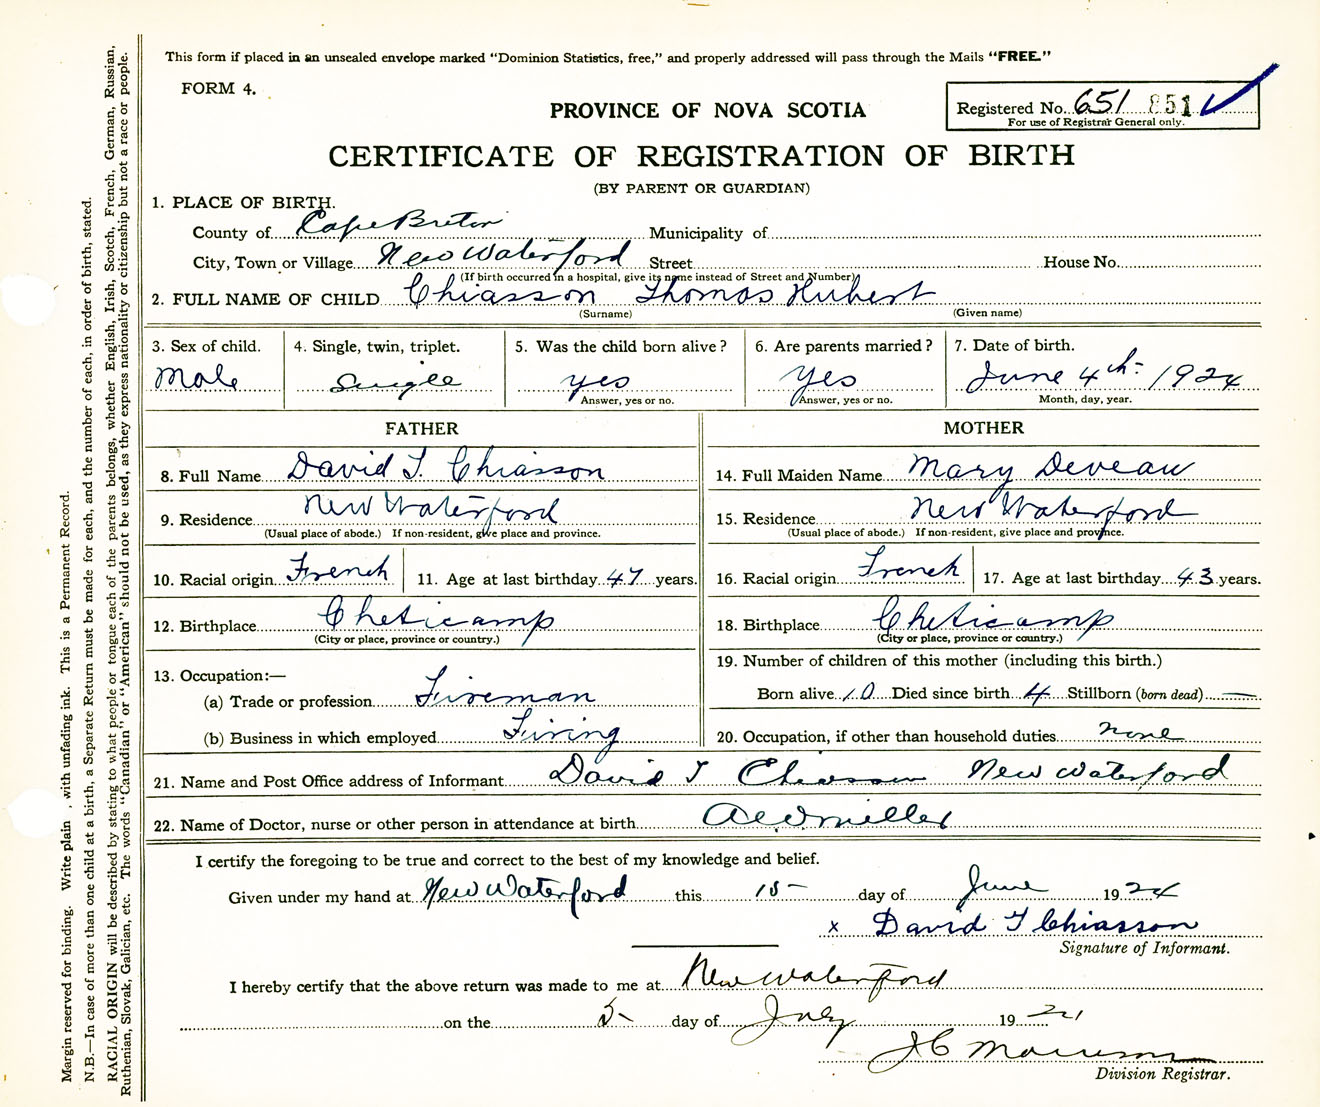 This form if placed in an unsealed envelope marked "Dominion Statistics, free," and properly addressed will pass through the Mails "FREE."
FORM 4.
PROVINCE OF NOVA SCOTIA
Registered No. 651 851 ✓
For use of Registrar General only.
CERTIFICATE OF REGISTRATION OF BIRTH
(BY PARENT OR GUARDIAN)
1. PLACE OF BIRTH.
County of Cape Breton Municipality of
City, Town or Village New Waterford Street House No.
(If birth occurred in a hospital, give its name instead of Street and Number)
2. FULL NAME OF CHILD Chiasson Thomas Hubert
(Surname) (Given name)
3. Sex of child. 4. Single, twin, triplet. 5. Was the child born alive? 6. Are parents married? 7. Date of birth.
Male Single yes Yes June 4th 1924
Answer, yes or no. Answer, yes or no. Month, day, year.
FATHER MOTHER
8. Full Name David T. Chiasson 14. Full Maiden Name Mary Deveau
9. Residence New Waterford 15. Residence New Waterford
(Usual place of abode.) If non-resident, give place and province. (Usual place of abode.) If non-resident, give place and province.
10. Racial origin French 11. Age at last birthday 47 years. 16. Racial origin French 17. Age at last birthday 43 years.
12. Birthplace Cheticamp 18. Birthplace Cheticamp
(City or place, province or country.) (City or place, province or country.)
13. Occupation:— 19. Number of children of this mother (including this birth.)
(a) Trade or profession Fireman Born alive 10 Died since birth 4 Stillborn (born dead) —
(b) Business in which employed Firing 20. Occupation, if other than household duties none
21. Name and Post Office address of Informant David T Chiasson New Waterford
22. Name of Doctor, nurse or other person in attendance at birth Miller
I certify the foregoing to be true and correct to the best of my knowledge and belief.
Given under my hand at New Waterford this 15 day of June 1924
x David T Chiasson
Signature of Informant.
I hereby certify that the above return was made to me at New Waterford
on the 5 day of July 19
J C Morrison
Division Registrar.
Margin reserved for binding. Write plain , with unfading ink. This is a Permanent Record.
N.B.—In case of more than one child at a birth, a Separate Return must be made for each, and the number of each, in order of birth, stated.
RACIAL ORIGIN will be described by stating to what people or tongue each of the parents belongs, whether English, Irish, Scotch, French, German, Russian,
Ruthenian, Slovak, Galician, etc. The words "Canadian" or "American" should not be used, as they express nationality or citizenship but not a race or people.